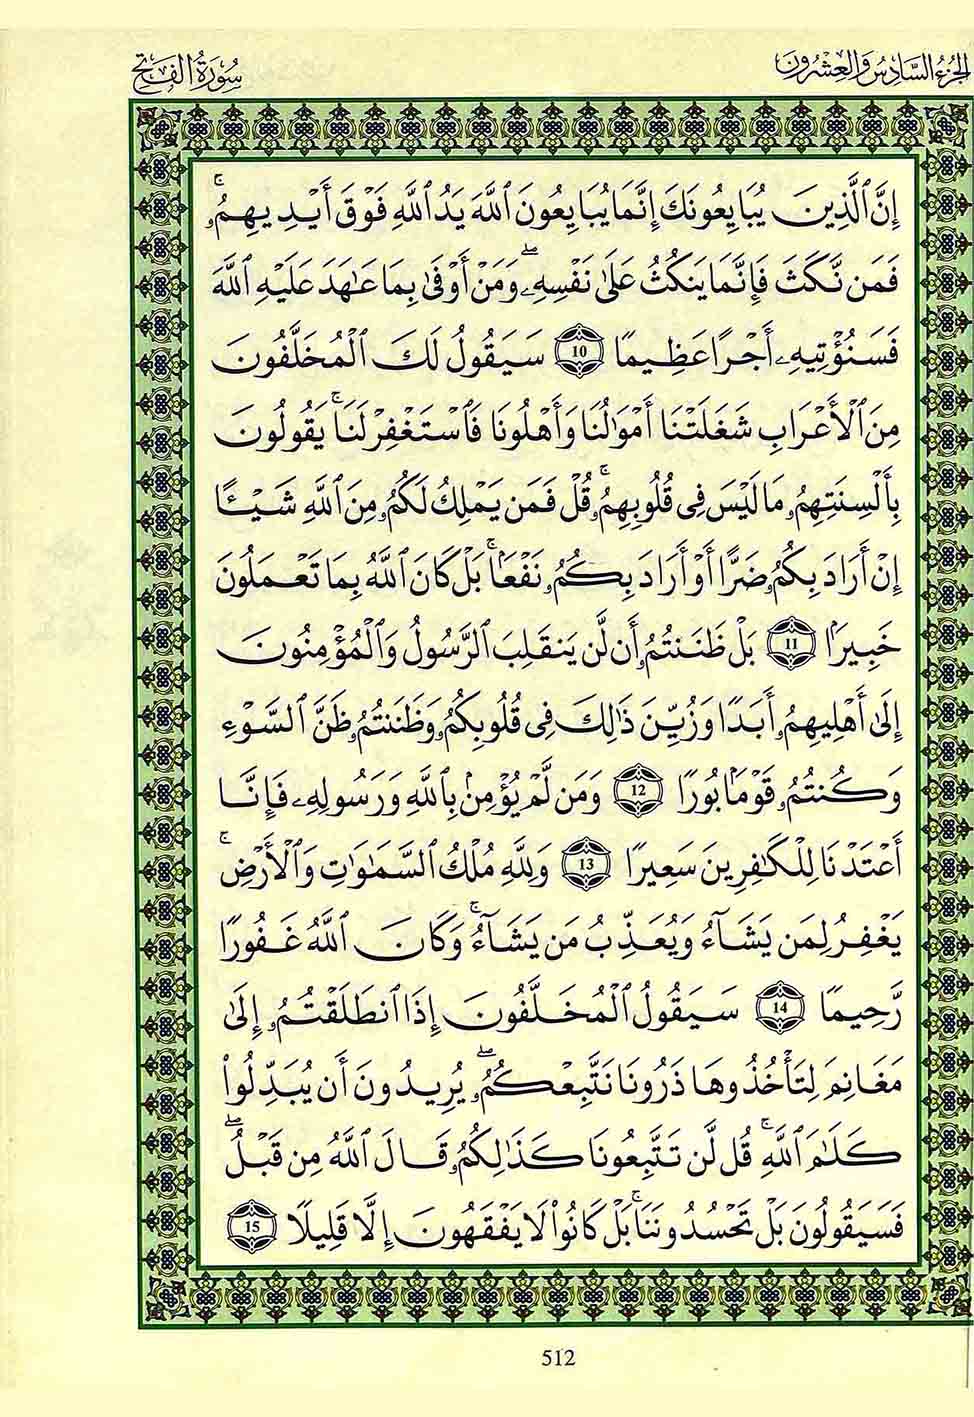 الجزء السادس والعشرون
سورة الفتح
إِنَّ ٱلَّذِينَ يُبَايِعُونَكَ إِنَّمَا يُبَايِعُونَ ٱللَّهَ يَدُ ٱللَّهِ فَوْقَ أَيْدِيهِمُۥۚ
فَمَن نَّكَثَ فَإِنَّمَا يَنكُثُ عَلَىٰ نَفْسِهِۦۖ وَمَنْ أَوْفَىٰ بِمَا عَٰهَدَ عَلَيْهِ ٱللَّهَ
فَسَنُؤْتِيهِۦ أَجْرًا عَظِيمًا 10 سَيَقُولُ لَكَ ٱلْمُخَلَّفُونَ
مِنَ ٱلْأَعْرَابِ شَغَلَتْنَا أَمْوَٰلُنَا وَأَهْلُونَا فَٱسْتَغْفِرْ لَنَاۚ يَقُولُونَ
بِأَلْسِنَتِهِمُۥ مَا لَيْسَ فِى قُلُوبِهِمُۥۚ قُلْ فَمَن يَمْلِكُ لَكُمُۥ مِنَ ٱللَّهِ شَيْـًٔا
إِنْ أَرَادَ بِكُمُۥ ضَرًّا أَوْ أَرَادَ بِكُمُۥ نَفْعَۢاۚ بَلْ كَانَ ٱللَّهُ بِمَا تَعْمَلُونَ
خَبِيرَۢا 11 بَلْ ظَنَنتُمُۥ أَن لَّن يَنقَلِبَ ٱلرَّسُولُ وَٱلْمُؤْمِنُونَ
إِلَىٰ أَهْلِيهِمُۥ أَبَدًا وَزُيِّنَ ذَٰلِكَ فِى قُلُوبِكُمُۥ وَظَنَنتُمُۥ ظَنَّ ٱلسَّوْءِ
وَكُنتُمُۥ قَوْمَۢا بُورًا 12 وَمَن لَّمْ يُؤْمِنۢ بِٱللَّهِ وَرَسُولِهِۦ فَإِنَّا
أَعْتَدْنَا لِلْكَٰفِرِينَ سَعِيرًا 13 وَلِلَّهِ مُلْكُ ٱلسَّمَٰوَٰتِ وَٱلْأَرْضِۚ
يَغْفِرُ لِمَن يَشَآءُ وَيُعَذِّبُ مَن يَشَآءُۚ وَكَانَ ٱللَّهُ غَفُورًا
رَّحِيمًا 14 سَيَقُولُ ٱلْمُخَلَّفُونَ إِذَا ٱنطَلَقْتُمُۥ إِلَىٰ
مَغَانِمَ لِتَأْخُذُوهَا ذَرُونَا نَتَّبِعْكُمُۥۖ يُرِيدُونَ أَن يُبَدِّلُوا۟
كَلَٰمَ ٱللَّهِۚ قُل لَّن تَتَّبِعُونَا كَذَٰلِكُمُۥ قَالَ ٱللَّهُ مِن قَبْلُۖ
فَسَيَقُولُونَ بَلْ تَحْسُدُونَنَاۚ بَلْ كَانُوا۟ لَا يَفْقَهُونَ إِلَّا قَلِيلًا 15
512